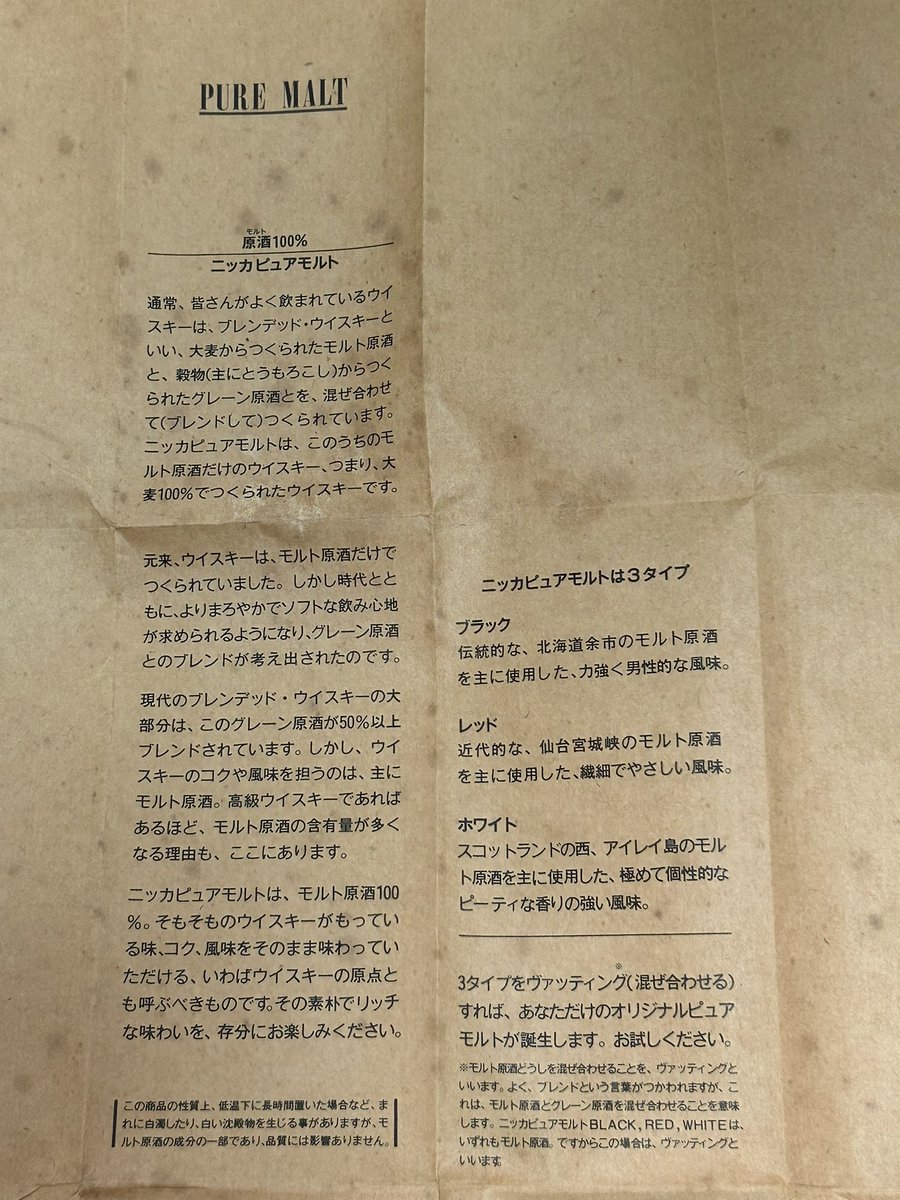 PURE MALT
モルト
原酒100%
ニッカピュアモルト
通常、皆さんがよく飲まれているウイ
スキーは、ブレンデッド・ウイスキーと
いい、大麦からつくられたモルト原酒
と、穀物(主にとうもろこし)からつく
られたグレーン原酒とを、混ぜ合わせ
て(ブレンドして)つくられています。
ニッカピュアモルトは、このうちのモ
ルト原酒だけのウイスキー、つまり、大
麦100%でつくられたウイスキーです。
元来、ウイスキーは、モルト原酒だけで
つくられていました。しかし時代とと
もに、よりまろやかでソフトな飲み心地
が求められるようになり、グレーン原酒
とのブレンドが考え出されたのです。
現代のブレンデッド・ウイスキーの大
部分は、このグレーン原酒が50%以上
ブレンドされています。しかし、ウイ
スキーのコクや風味を担うのは、主に
モルト原酒。高級ウイスキーであれば
あるほど、モルト原酒の含有量が多く
なる理由も、ここにあります。
ニッカピュアモルトは、モルト原酒100
%。そもそものウイスキーがもってい
る味、コク、風味をそのまま味わってい
ただける、いわばウイスキーの原点と
も呼ぶべきものです。その素朴でリッチ
な味わいを、存分にお楽しみください。
この商品の性質上、低温下に長時間置いた場合など、ま
れに白濁したり、白い沈殿物を生じる事がありますが、モ
ルト原酒の成分の一部であり、品質には影響ありません。
ニッカピュアモルトは3タイプ
ブラック
伝統的な、北海道余市のモルト原酒
を主に使用した、力強く男性的な風味。
レッド
近代的な、仙台宮城峡のモルト原酒
を主に使用した、繊細でやさしい風味。
ホワイト
スコットランドの西、アイレイ島のモル
ト原酒を主に使用した、極めて個性的な
ピーティな香りの強い風味。
※
3タイプをヴァッティング(混ぜ合わせる)
すれば、あなただけのオリジナルピュア
モルトが誕生します。お試しください。
※モルト原酒どうしを混ぜ合わせることを、ヴァッティングと
いいます。よく、ブレンドという言葉がつかわれますが、こ
れは、モルト原酒とグレーン原酒を混ぜ合わせることを意味
します。ニッカピュアモルトBLACK, RED, WHITEは、
いずれもモルト原酒。ですからこの場合は、ヴァッティングと
いいます。